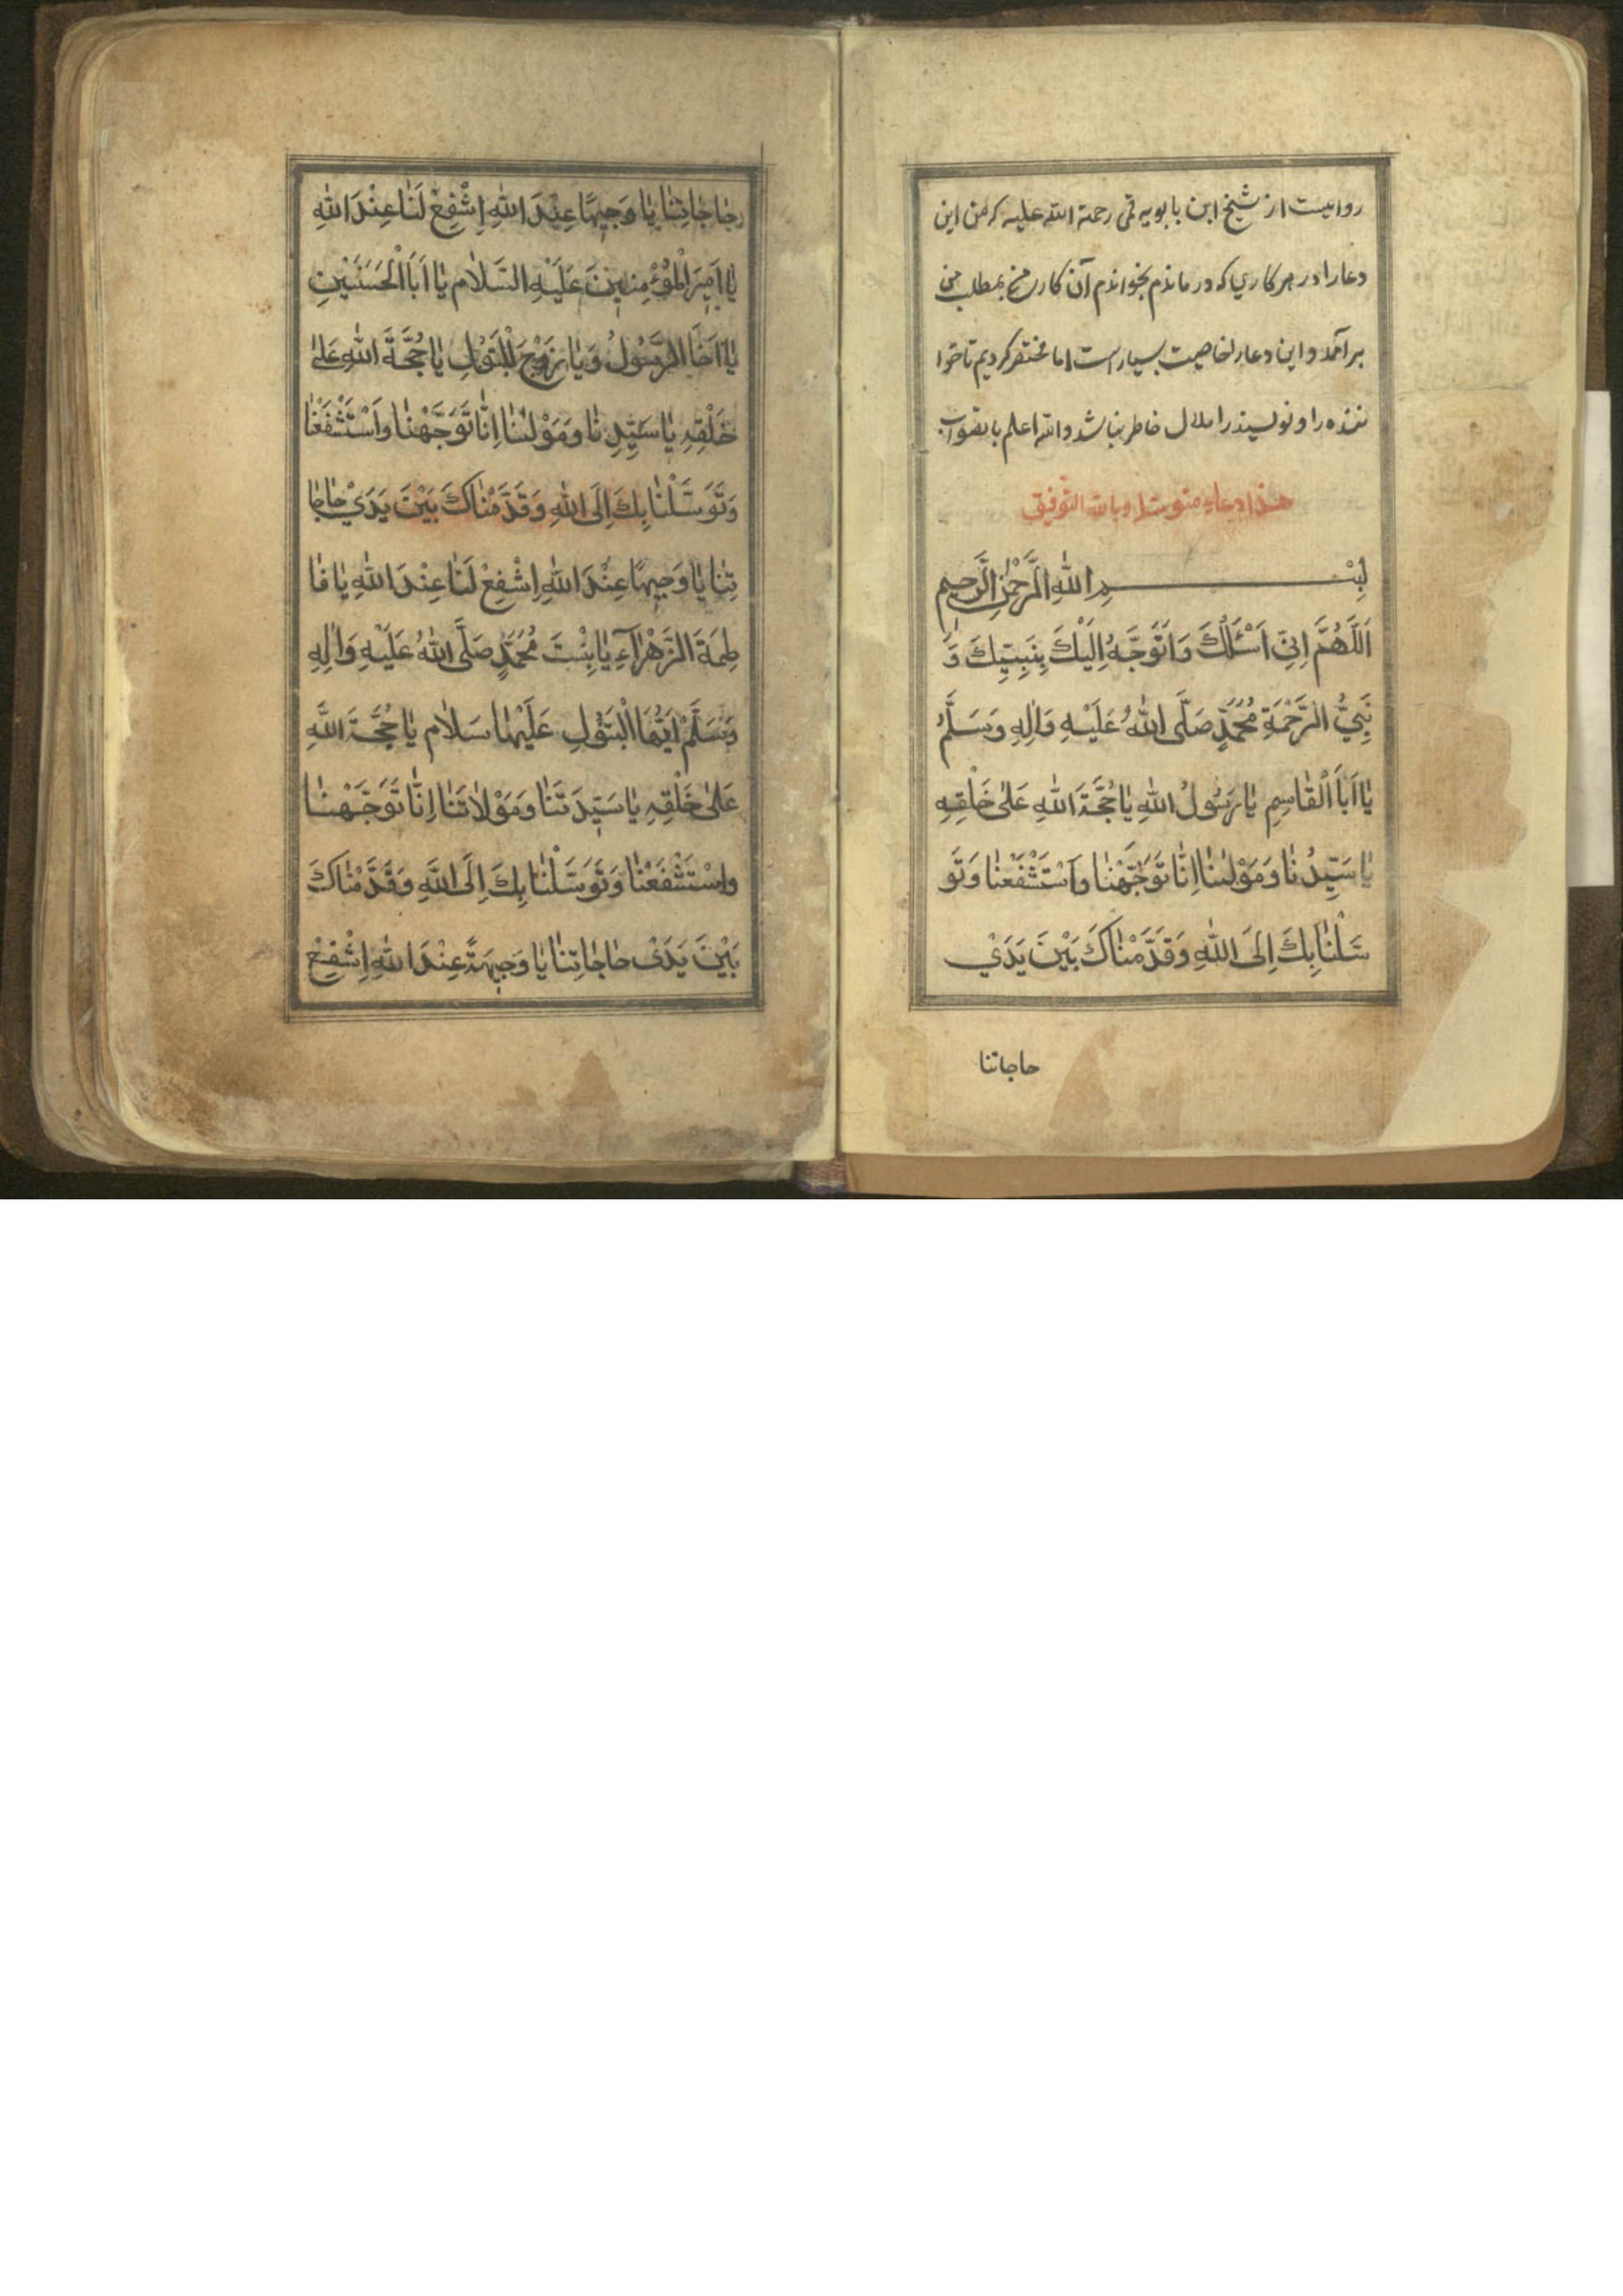 روایتست از شیخ ابن بابویه قمی رحمة الله علیه که من این
دعا را در هر کاری که در ماندم بخواندم آن کار من بمطلب من
بر آمد و این دعا را خاصیت بسیار است اما مختصر کردیم تا خوا
ننده را و نویسنده را ملال خاطر نباشد والله اعلم بالصواب
هذا دعاء متوسل وبالله التوفیق
بِسْمِ اللهِ الرَّحْمٰنِ الرَّحِيمِ
اَللّٰهُمَّ اِنِّي اَسْئَلُكَ وَاَتَوَجَّهُ اِلَيْكَ بِنَبِيِّكَ وَ
نَبِيِّ الرَّحْمَةِ مُحَمَّدٍ صَلَّى اللهُ عَلَيْهِ وَاٰلِهِ وَسَلَّمَ
يٰا اَبَا الْقٰاسِمِ يٰا رَسُولُ اللهِ يٰا حُجَّةَ اللهِ عَلىٰ خَلْقِهِ
يٰا سَيِّدُنٰا وَمَوْلٰينٰا اِنّٰا تَوَجَّهْنٰا وَاَسْتَشْفَعْنٰا وَتَوَ
سَّلْنٰا بِكَ اِلَى اللهِ وَقَدَّمْنٰاكَ بَيْنَ يَدَيْ
حاجاتنا
حٰاجٰاتِنٰا يٰا وَجِيهًا عِنْدَ اللهِ اِشْفِعْ لَنٰا عِنْدَ اللهِ
يٰا اَمِيرَ الْمُؤْمِنِينَ عَلَيْهِ السَّلٰام يٰا اَبَا الْحَسَنَيْنِ
يٰا اَخَا الرَّسُولُ وَيٰا زَوْجَ الْبَتُولِ يٰا حُجَّةَ اللهِ عَلىٰ
خَلْقِهِ يٰا سَيِّدِنٰا وَمَوْلٰينٰا اِنّٰا تَوَجَّهْنٰا وَاَسْتَشْفَعْنٰا
وَتَوَسَّلْنٰا بِكَ اِلَى اللهِ وَقَدَّمْنٰاكَ بَيْنَ يَدَيْ حٰاجٰا
تِنٰا يٰا وَجِيهًا عِنْدَ اللهِ اِشْفِعْ لَنٰا عِنْدَ اللهِ يٰا فٰا
طِمَةَ الزَّهْرٰاءِ يٰا بِنْتَ مُحَمَّدٍ صَلَّى اللهُ عَلَيْهِ وَاٰلِهِ
وَسَلَّمْ اَيَّتُهَا الْبَتُولِ عَلَيْهٰا سَلٰام يٰا حُجَّةَ اللهِ
عَلىٰ خَلْقِهِ يٰا سَيِّدَتَنٰا وَمَوْلٰاتَنٰا اِنّٰا تَوَجَّهْنٰا
وَاسْتَشْفَعْنٰا وَتَوَسَّلْنٰا بِكَ اِلَى اللهِ وَقَدَّمْنٰاكَ
بَيْنَ يَدَىْ حٰاجٰاتِنٰا يٰا وَجِيهَةً عِنْدَ اللهِ اِشْفِعْ